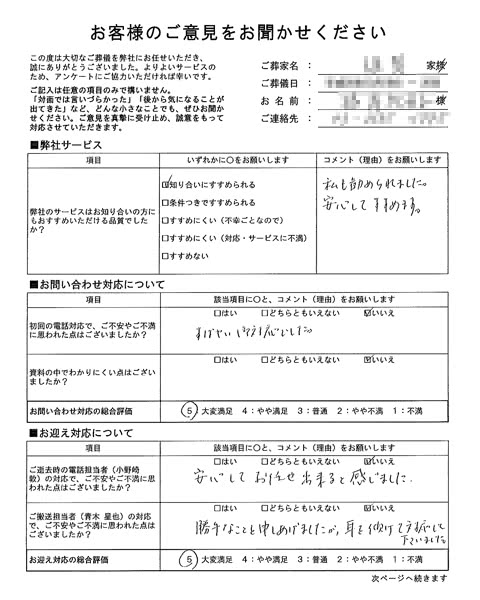 お客様のご意見をお聞かせください
この度は大切なご葬儀を弊社にお任せいただき、
誠にありがとうございました。よりよいサービスの
ため、アンケートにご協力いただければ幸いです。
ご記入は任意の項目のみで構いません。
「対面では言いづらかった」「後から気になることが
出てきた」など、どんな小さなことでも、ぜひお聞か
せください。ご意見を真摯に受け止め、誠意をもって
対応させていただきます。
ご葬家名： 家様
ご葬儀日：
お名前： 様
ご連絡先：
■弊社サービス
項目 いずれかに○をお願いします コメント（理由）をお願いします
弊社のサービスはお知り合いの方に
もおすすめいただける品質でした
か？
☑知り合いにすすめられる
□条件つきですすめられる
□すすめにくい（不幸ごとなので）
□すすめにくい（対応・サービスに不満）
□すすめない
私も勧められました。
安心してすすめます。
■お問い合わせ対応について
項目 該当項目に○と、コメント（理由）をお願いします
初回の電話対応で、ご不安やご不満
に思われた点はございましたか？
□はい □どちらともいえない ☑いいえ
すばやい対応でした。
資料の中でわかりにくい点はござい
ましたか？
□はい □どちらともいえない ☑いいえ
お問い合わせ対応の総合評価 5 大変満足 4：やや満足 3：普通 2：やや不満 1：不満
■お迎え対応について
項目 該当項目に○と、コメント（理由）をお願いします
ご逝去時の電話担当者（小野崎
敦）の対応で、ご不安やご不満に思
われた点はございましたか？
□はい □どちらともいえない ☑いいえ
安心してお任せ出来ると感じました.
ご搬送担当者（青木 星也）の対応
で、ご不安やご不満に思われた点は
ございましたか？
□はい □どちらともいえない ☑いいえ
勝手なことを申しあげましたが、耳を傾けて対応して
下さいました
お迎え対応の総合評価 5 大変満足 4：やや満足 3：普通 2：やや不満 1：不満
次ページへ続きます